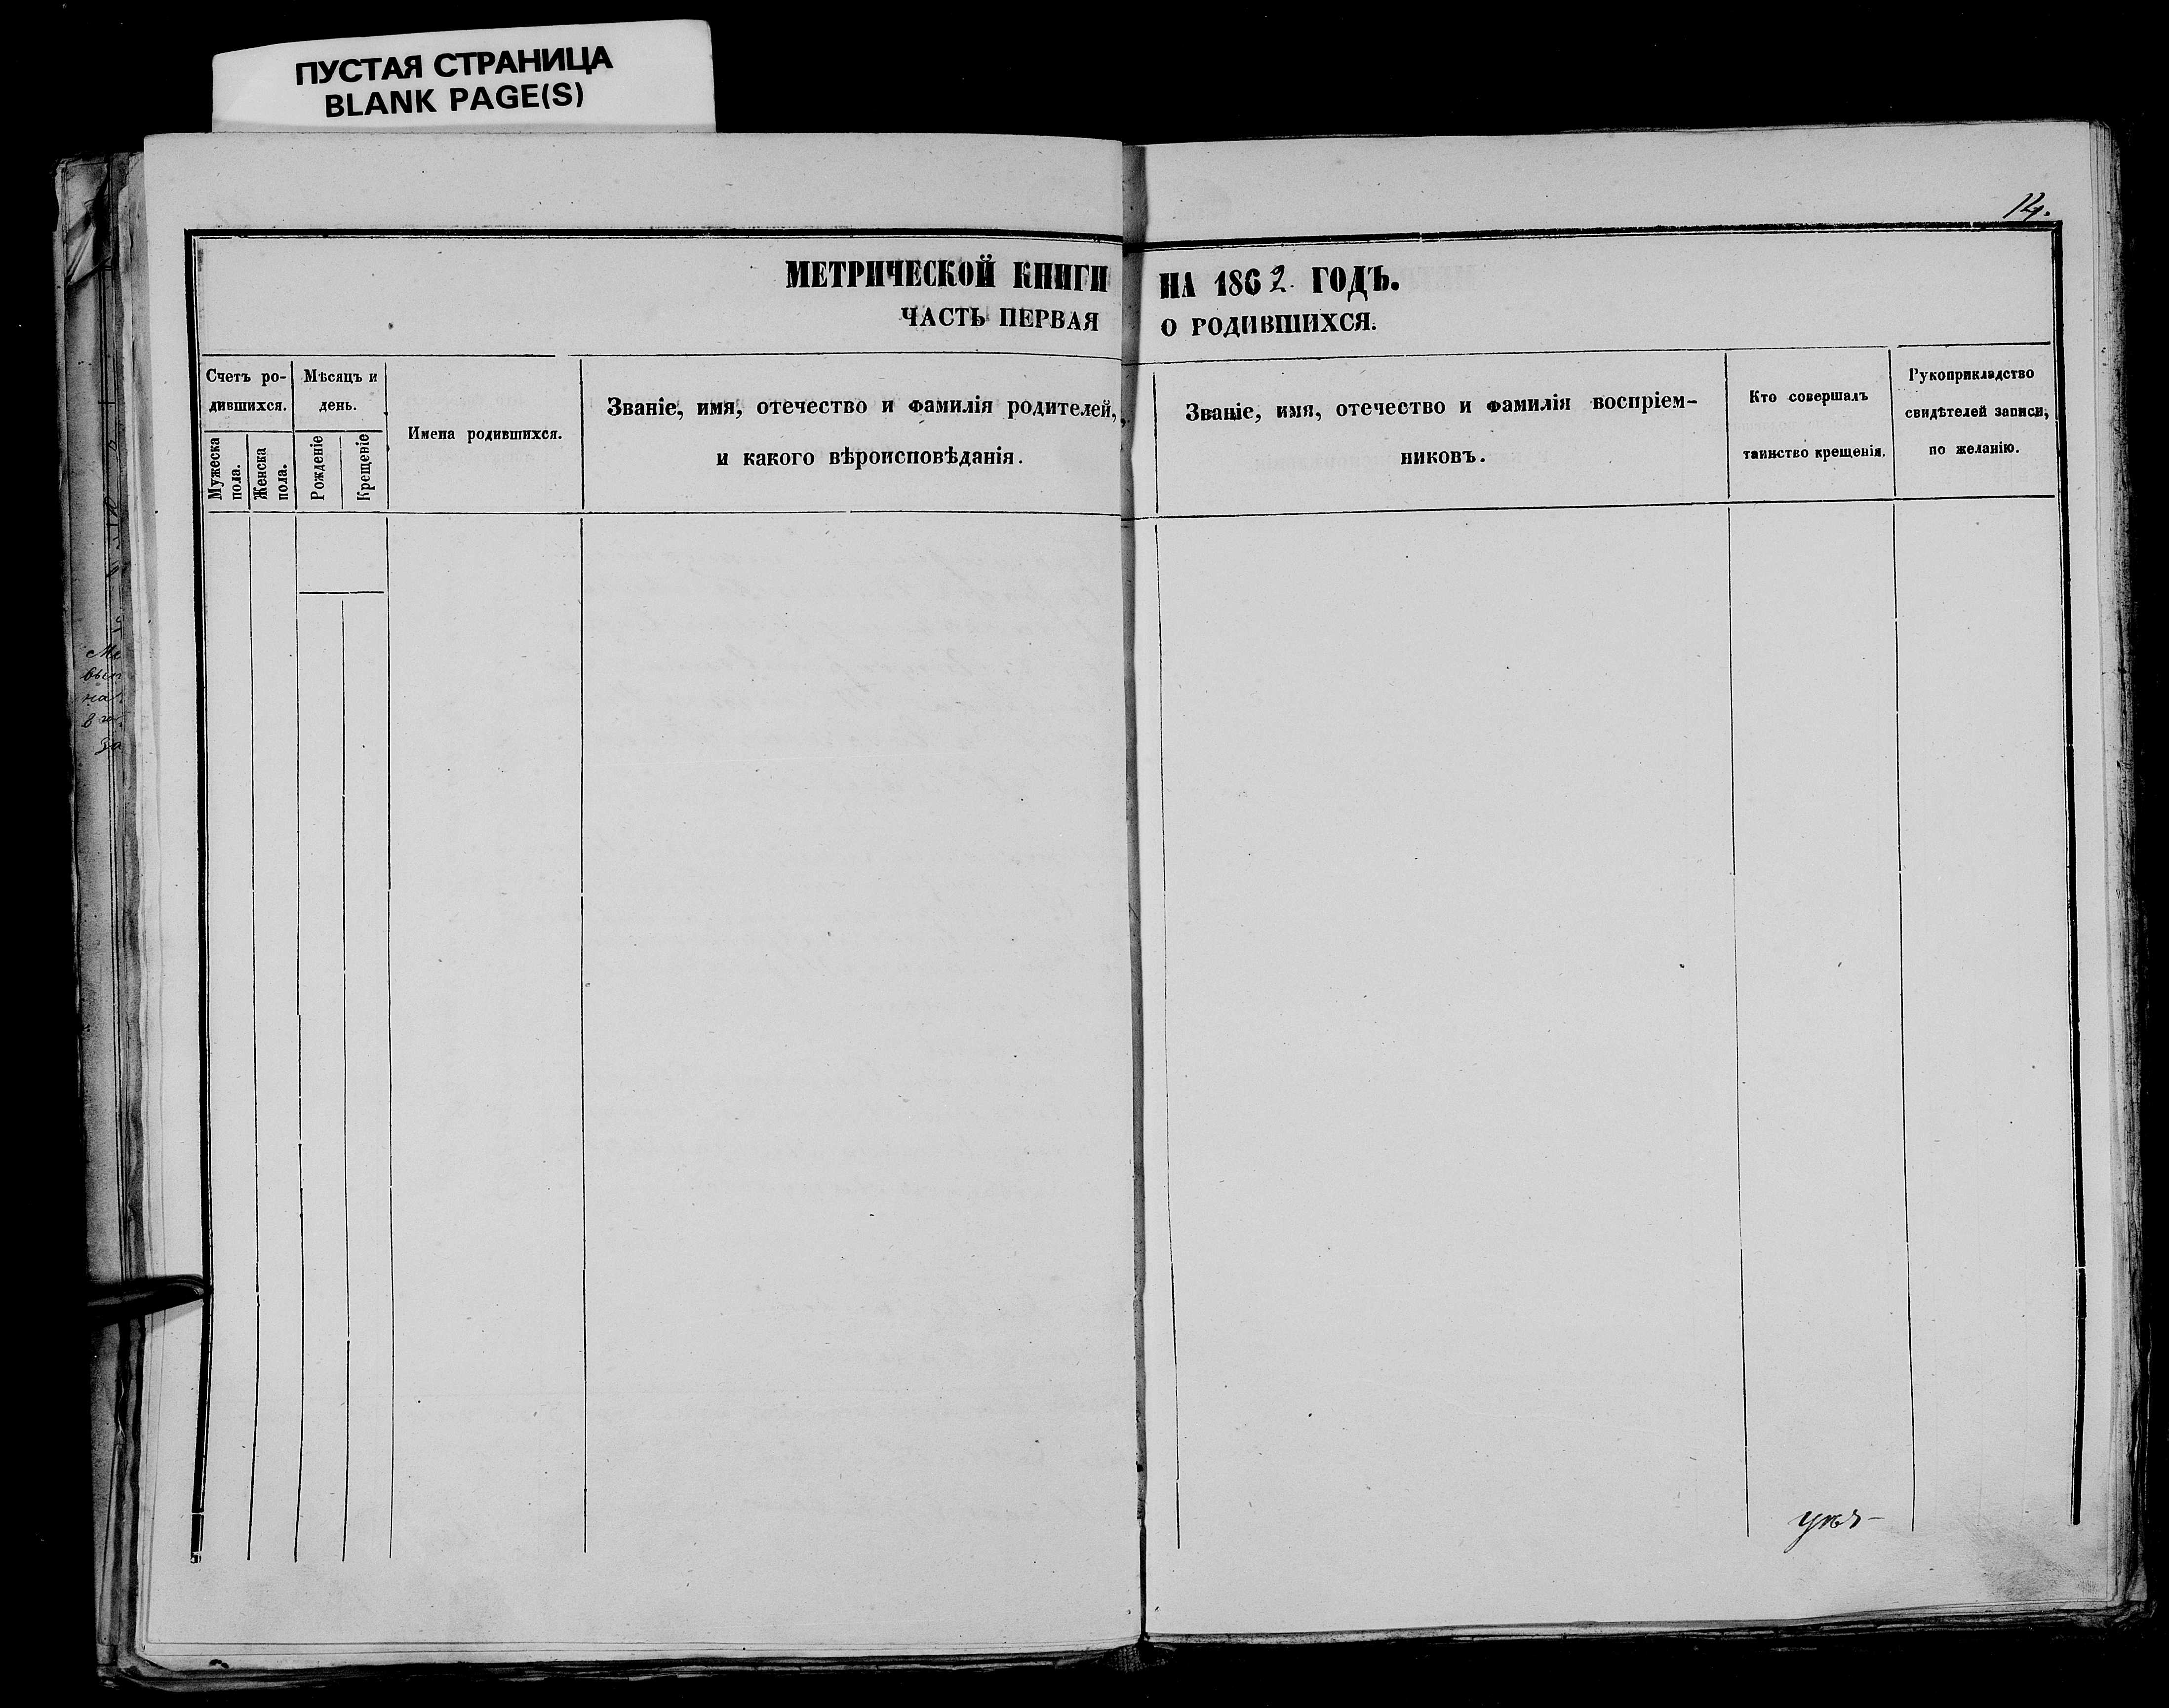 ПУСТАЯ СТРАНИЦА
BLANK PAGE(S)
14.
МЕТРИЧЕСКОЙ КНИГИ НА 1862. ГОДЪ.
ЧАСТЬ ПЕРВАЯ О РОДИВШИХСЯ.
Счетъ ро-
дившихся.
Мужеска
пола.
Женска
пола.
Мѣсяцъ и
день.
Рожденіе
Крещеніе
Имена родившихся.
Званіе, имя, отечество и фамилія родителей,
и какого вѣроисповѣданія.
Званіе, имя, отечество и фамилія воспріем-
никовъ.
Кто совершалъ
таинство крещенія.
Рукоприкладство
свидѣтелей записи,
по желанію.